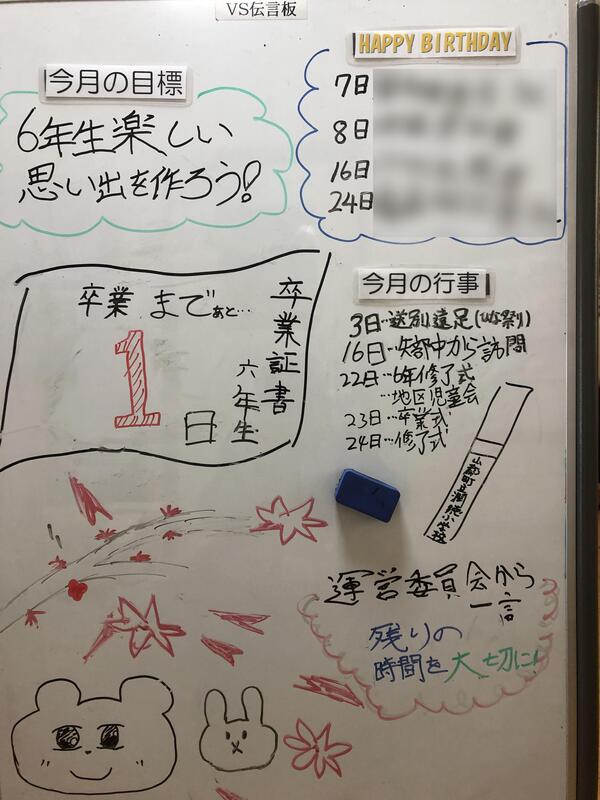 VS伝言板
今月の目標
6年生楽しい
思い出を作ろう!
HAPPY BIRTHDAY
7日
8日
16日
24日
卒業証書
六年生
卒業まであと…
1日
今月の行事
3日…送別遠足(VS祭り)
16日…矢部中から訪問
22日…6年修了式
…地区児童会
23日…卒業式
24日…修了式
山都町立潤徳小学校
運営委員会から
一言
残りの
時間を大切に!